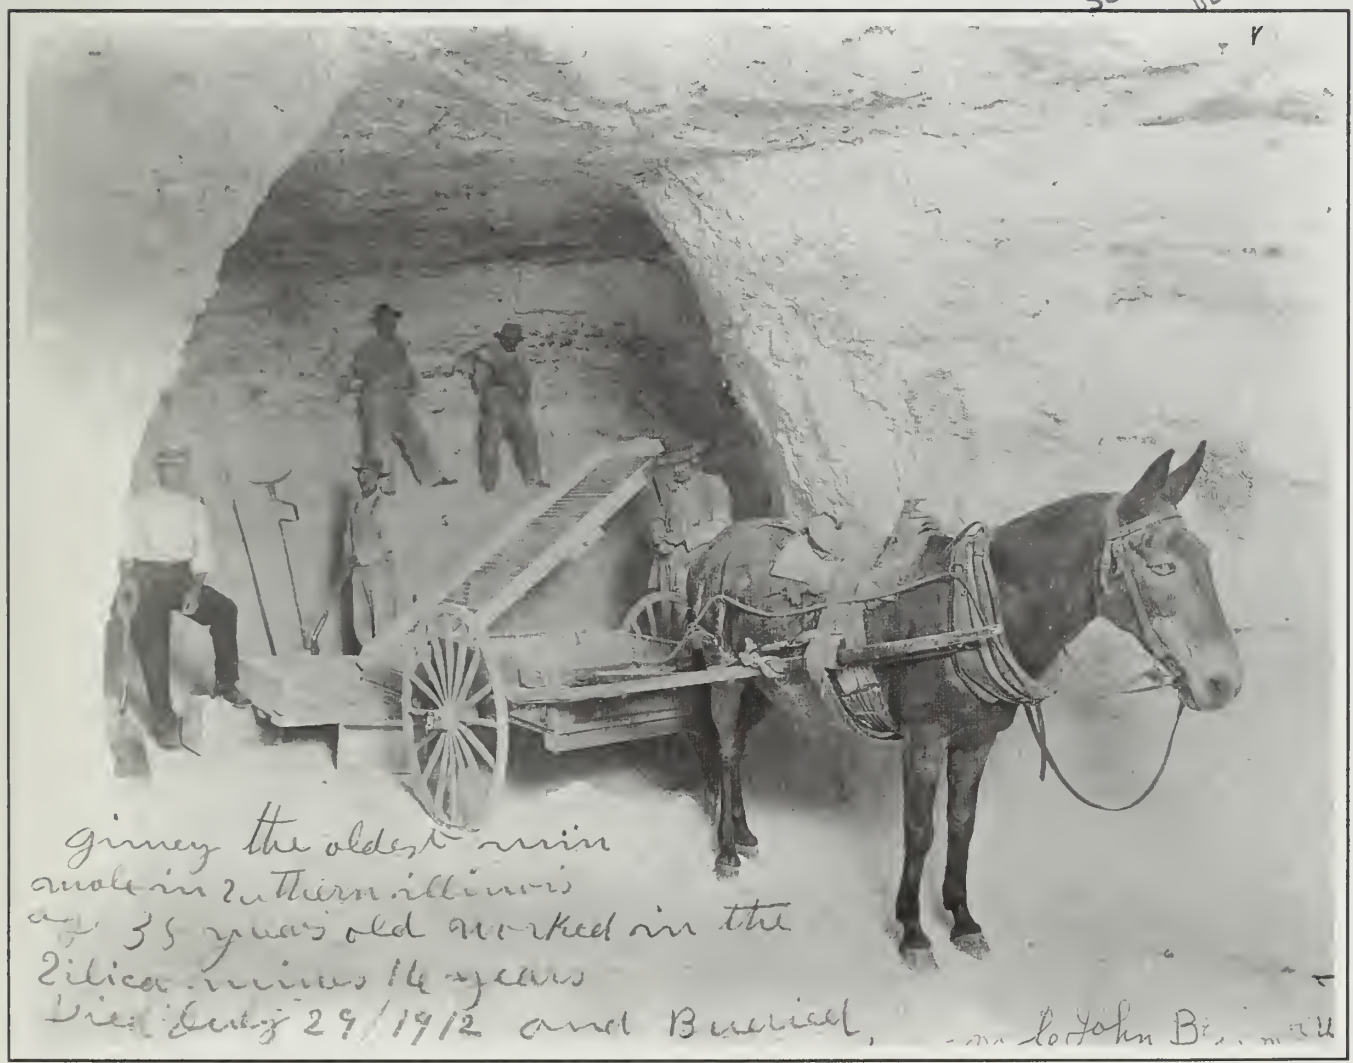 ginney the oldest min
mule in Suthern illinois
age 35 years old worked in the
Silica mines 14 years
Died July 29/1912 and Buried,
John